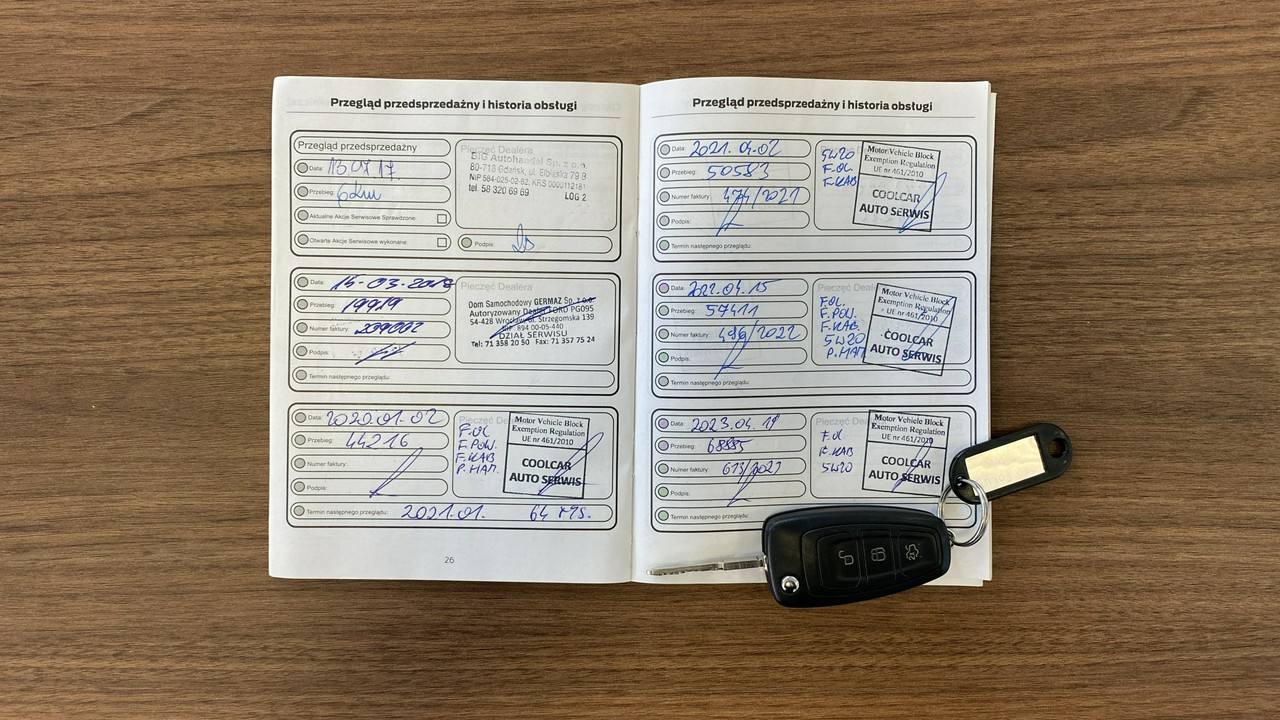 Przegląd przedsprzedażny i historia obsługi
Przegląd przedsprzedażny
Data: 13 07 17.
Przebieg: 6km
Aktualne Akcje Serwisowe Sprawdzone:
Otwarte Akcje Serwisowe wykonane:
Pieczęć Dealera
BIG Autohandel Sp. z o.o.
80-718 Gdańsk, ul. Elbląska 79 B
NIP 584-025-02-62, KRS 0000112181
tel. 58 320 69 69 LOG 2
Podpis:
Data: 15-03-
Przebieg: 19919
Numer faktury:
Podpis:
Termin następnego przeglądu:
Pieczęć Dealera
Dom Samochodowy GERMAZ Sp. z o.o.
Autoryzowany Dealer FORD PG095
54-428 Wrocław, ul. Strzegomska 139
NIP 894 00-05-440
DZIAŁ SERWISU
Tel: 71 358 20 50 Fax: 71 357 75 24
Data: 2020.01.02
Przebieg: 44216
Numer faktury:
Podpis:
Termin następnego przeglądu: 2021.01. 64 TYS.
Pieczęć
F.OL
F.POW.
F.KAB
P.HAM.
Motor Vehicle Block
Exemption Regulation
UE nr 461/2010
COOLCAR
AUTO SERWIS
26
Przegląd przedsprzedażny i historia obsługi
Data: 2021.04.02
Przebieg: 50583
Numer faktury: 474/2021
Podpis:
Termin następnego przeglądu:
5W20
F.OL.
F.KAB
Motor Vehicle Block
Exemption Regulation
UE nr 461/2010
COOLCAR
AUTO SERWIS
Data: 2022.04.15
Przebieg: 57411
Numer faktury: 496/2022
Podpis:
Termin następnego przeglądu:
Pieczęć
F.OL.
F.POW.
F.KAB.
5W20
P.HAM
Motor Vehicle Block
Exemption Regulation
UE nr 461/2010
COOLCAR
AUTO SERWIS
Data: 2023.04.19
Przebieg: 68885
Numer faktury:
Podpis:
Termin następnego przeglądu:
Pieczęć
F.OL
F.KAB
5W20
Motor Vehicle Block
Exemption Regulation
UE nr 461/2010
COOLCAR
AUTO SERWIS